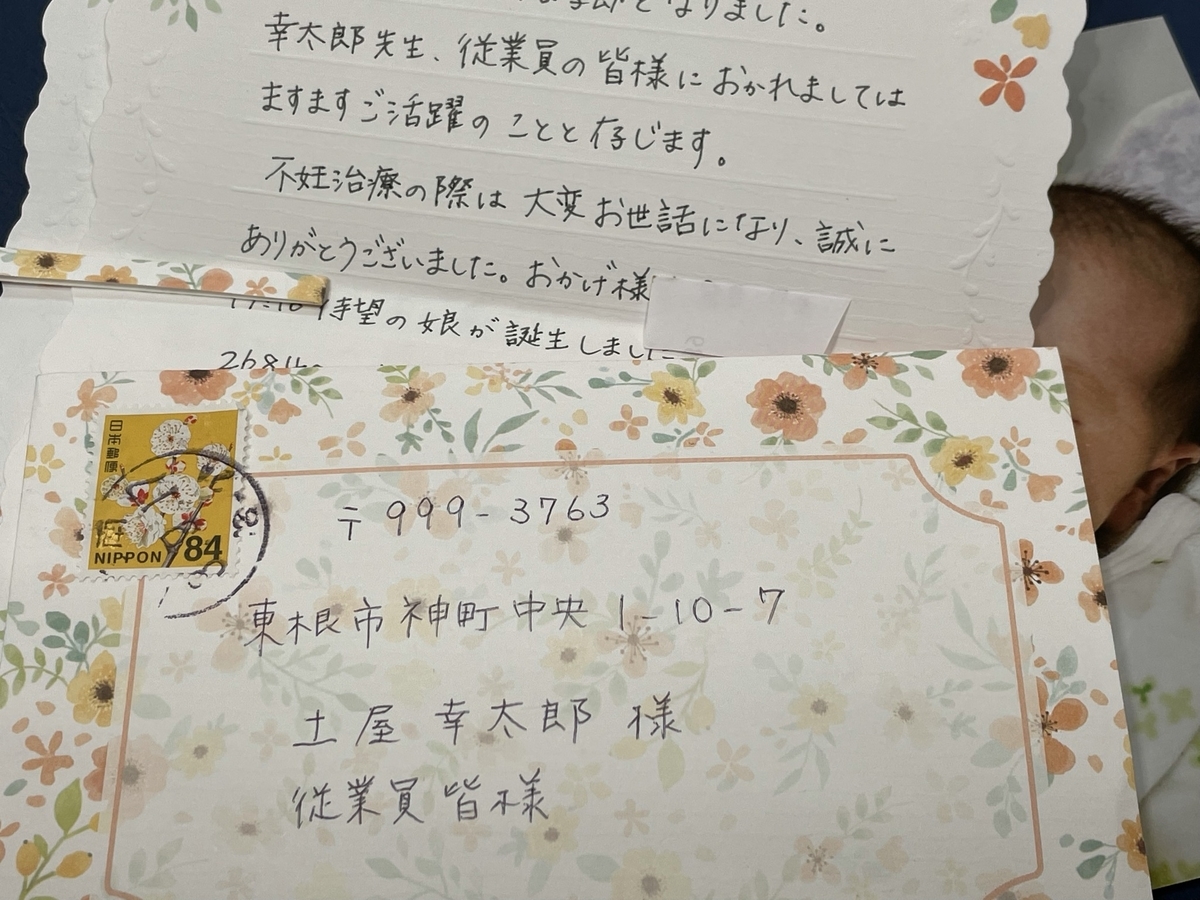 となりました。
幸太郎先生、従業員の皆様におかれましては
ますますご活躍のことと存じます。
不妊治療の際は大変お世話になり、誠に
ありがとうございました。おかげ様
待望の娘が誕生しました
日本郵便
NIPPON 84
〒999-3763
東根市神町中央1-10-7
土屋 幸太郎 様
従業員皆様